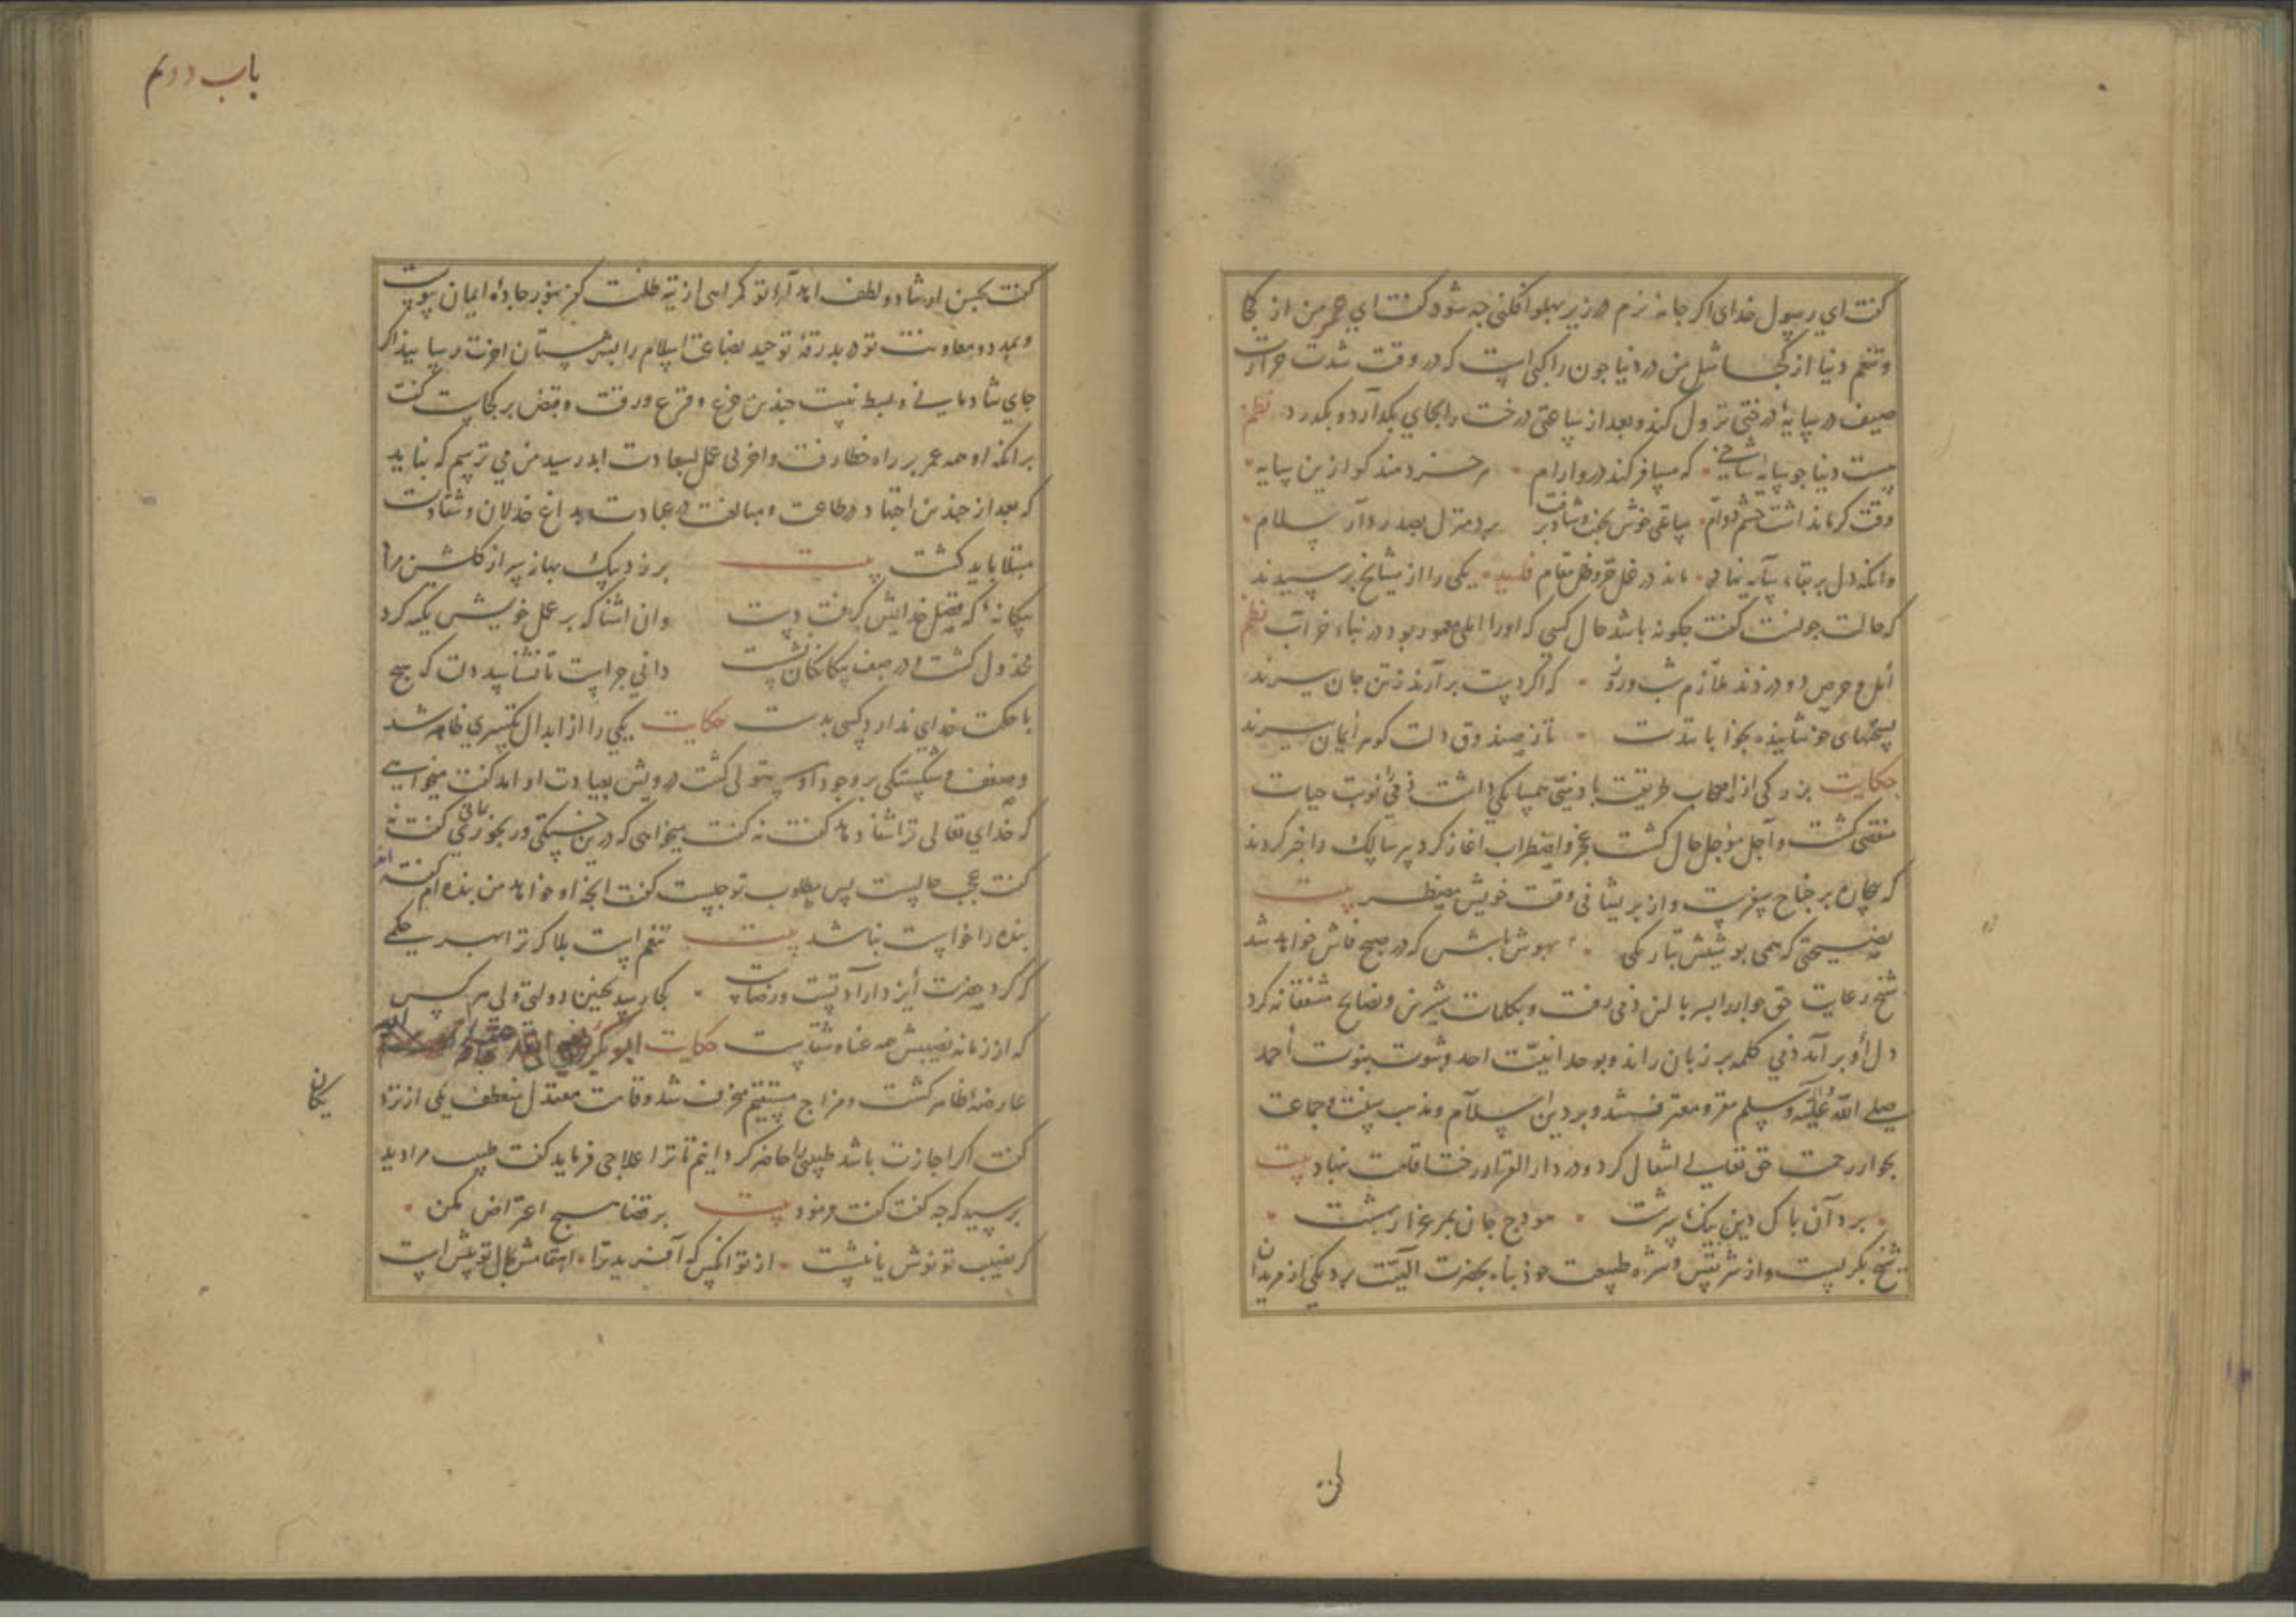 گفت ای رسول خدای اگر جامهٔ نرم در زیر پهلو افکنی چه شود گفت ای عمر من از کجا
و تنعم دنیا از کجا مثل من در دنیا چون راکبی است که در وقت شدت حرارت
صیف در سایهٔ درختی نزول کند و بعد از ساعتی درخت را بجای بگذارد و بگذرد نظم
هست دنیا چو سایهٔ شاخی که مسافر کند درو آرام هر خردمند کو ازین سایه
وقت کرما نداشت چشم دوام ساعتی خوش بخفت و شاد برفت برد منزل بصدر دار سلام
وانکه دل بر بقاء سایه نهاد ماند در مقام یکی را از مشایخ پرسیدند
که حالت چونست گفت چگونه باشد حال کسی که او را املی معمور بود در بناء خراب نظم
امل و حرص دو دزدند ملازم شب و روز که اگر دست برآرند ز تن جان ببرند
با تدست تا ز صندوق دلت گوهر ایمان ببرند
حکایت بزرگی از اصحاب طریقت با ذمّیی همسایگی داشت ذمی را نوبت حیات
منقضی گشت و اجل مؤجل حال گشت عجز و اضطراب آغاز کرد پیر سالک را خبر کردند
که بیچاره بر جناح سفرست و از پریشانی وقت خویش مضطر بیت
که همی پوشیش بتاریکی بهوش باش که در صبح فاش خواهد شد
شیخ رعایت حق جوار را بسر بالین ذمی رفت و بکلمات شیرین و نصایح مشفقانه گرد
دل او برآمد ذمی کلمه بر زبان راند و بوحدانیّت احد و ثبوت نبوت احمد
صلی الله علیه و آله و سلم مقر و معترف شد و بر دین اسلام و مذهب سنت و جماعت
بجوار رحمت حق تعالی انتقال کرد و در دار القرار رخت اقامت نهاد بیت
برد آن پاک دین نیک سرشت هودج جان بمرغزار بهشت
شیخ بگریست و از شر نفس و شره طبیعت خود پناه بحضرت الهیّت برد یکی از مریدان
گفت
باب دویم
گفت بحسن ارشاد و لطف امداد تو گمراهی از تیه ظلمت کفر بنور جادهٔ ایمان پیوست
و بمدد و معاونت تو و بدرقهٔ توحید بضاعت اسلام را بشبستان آخرت رسانید اگر
جای شادمانی و بسط نیست چندین جزع و فزع و رقت و قبض بر کجاست گفت
برانکه او همه عمر بر راه خطا رفت و آخر بی عمل بسعادت ابد رسید من می ترسم که نباید
که بعد از چندین اجتهاد در طاعت و مبالغت در عبادت بداغ خذلان و شقاوت
مبتلا باید گشت بیت
بیگانهٔ که فضل خدایش گرفت دست وان آشنا که بر عمل خویش تکیه کرد
مخذول گشت و در صف بیگانگان نشست دانی چراست تا نشناسد دلت که هیچ
با حکمت خدای ندارد کسی بدست حکایت یکی را از ابدال تکسری ظاهر شد
و ضعف و شکستگی بر وجود او مستولی گشت درویش بعیادت او آمد گفت میخواهی
که خدای تعالی ترا شفا دهد گفت نه گفت میخواهی که درین خستگی و رنجوری مانی گفت نه
گفت عجب حالیست پس مطلوب تو چیست گفت آنچه او خواهد من بنده ام
بنده را خواست نباشد بیت تنعم است بلا گر ترا رسد حکمی
که گرد حضرت ایزد ارادتست و رضاست کجا رسد بچنین دولتی ولی هر کس
که از زمانه نصیبش همه عنا و شقاست حکایت
یکان
عارضهٔ ظاهر گشت و مزاج مستقیم منحرف شد و قامت معتدل منعطف یکی از
گفت اگر اجازت باشد طبیبی را حاضر گردانیم تا ترا علاجی فرماید گفت طبیب مرا دید
پرسید که چه گفت گفت فرمود بیت بر قضا هیچ اعتراض مکن
گر نصیب تو نوش یا نیشست از تو آنکس که آفرید ترا اهتمامش بحال تو بیش است